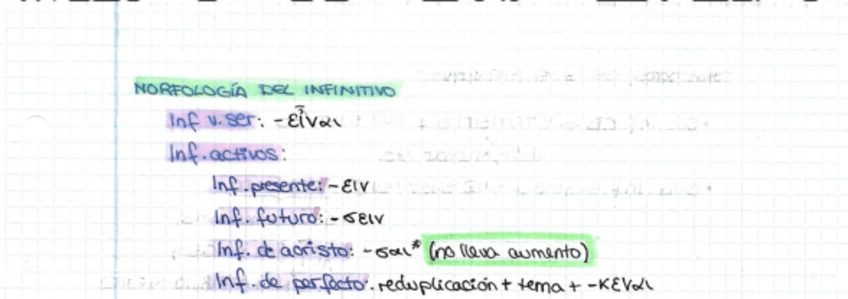 MORFOLOGÍA DEL INFINITIVO
Inf v. ser: -εἶναι
Inf. activos:
Inf. presente: -ειν
Inf. futuro: -σειν
Inf. de aoristo: -σαι* (no lleva aumento)
Inf. de perfecto: reduplicación + tema + -κέναι